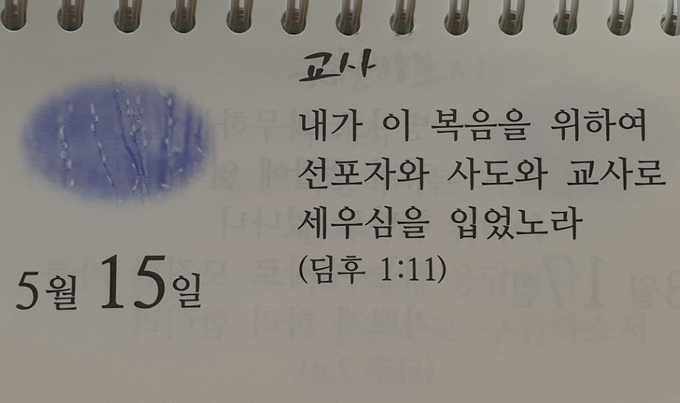 교사
내가 이 복음을 위하여
선포자와 사도와 교사로
세우심을 입었노라
(딤후 1:11)
5월 15일